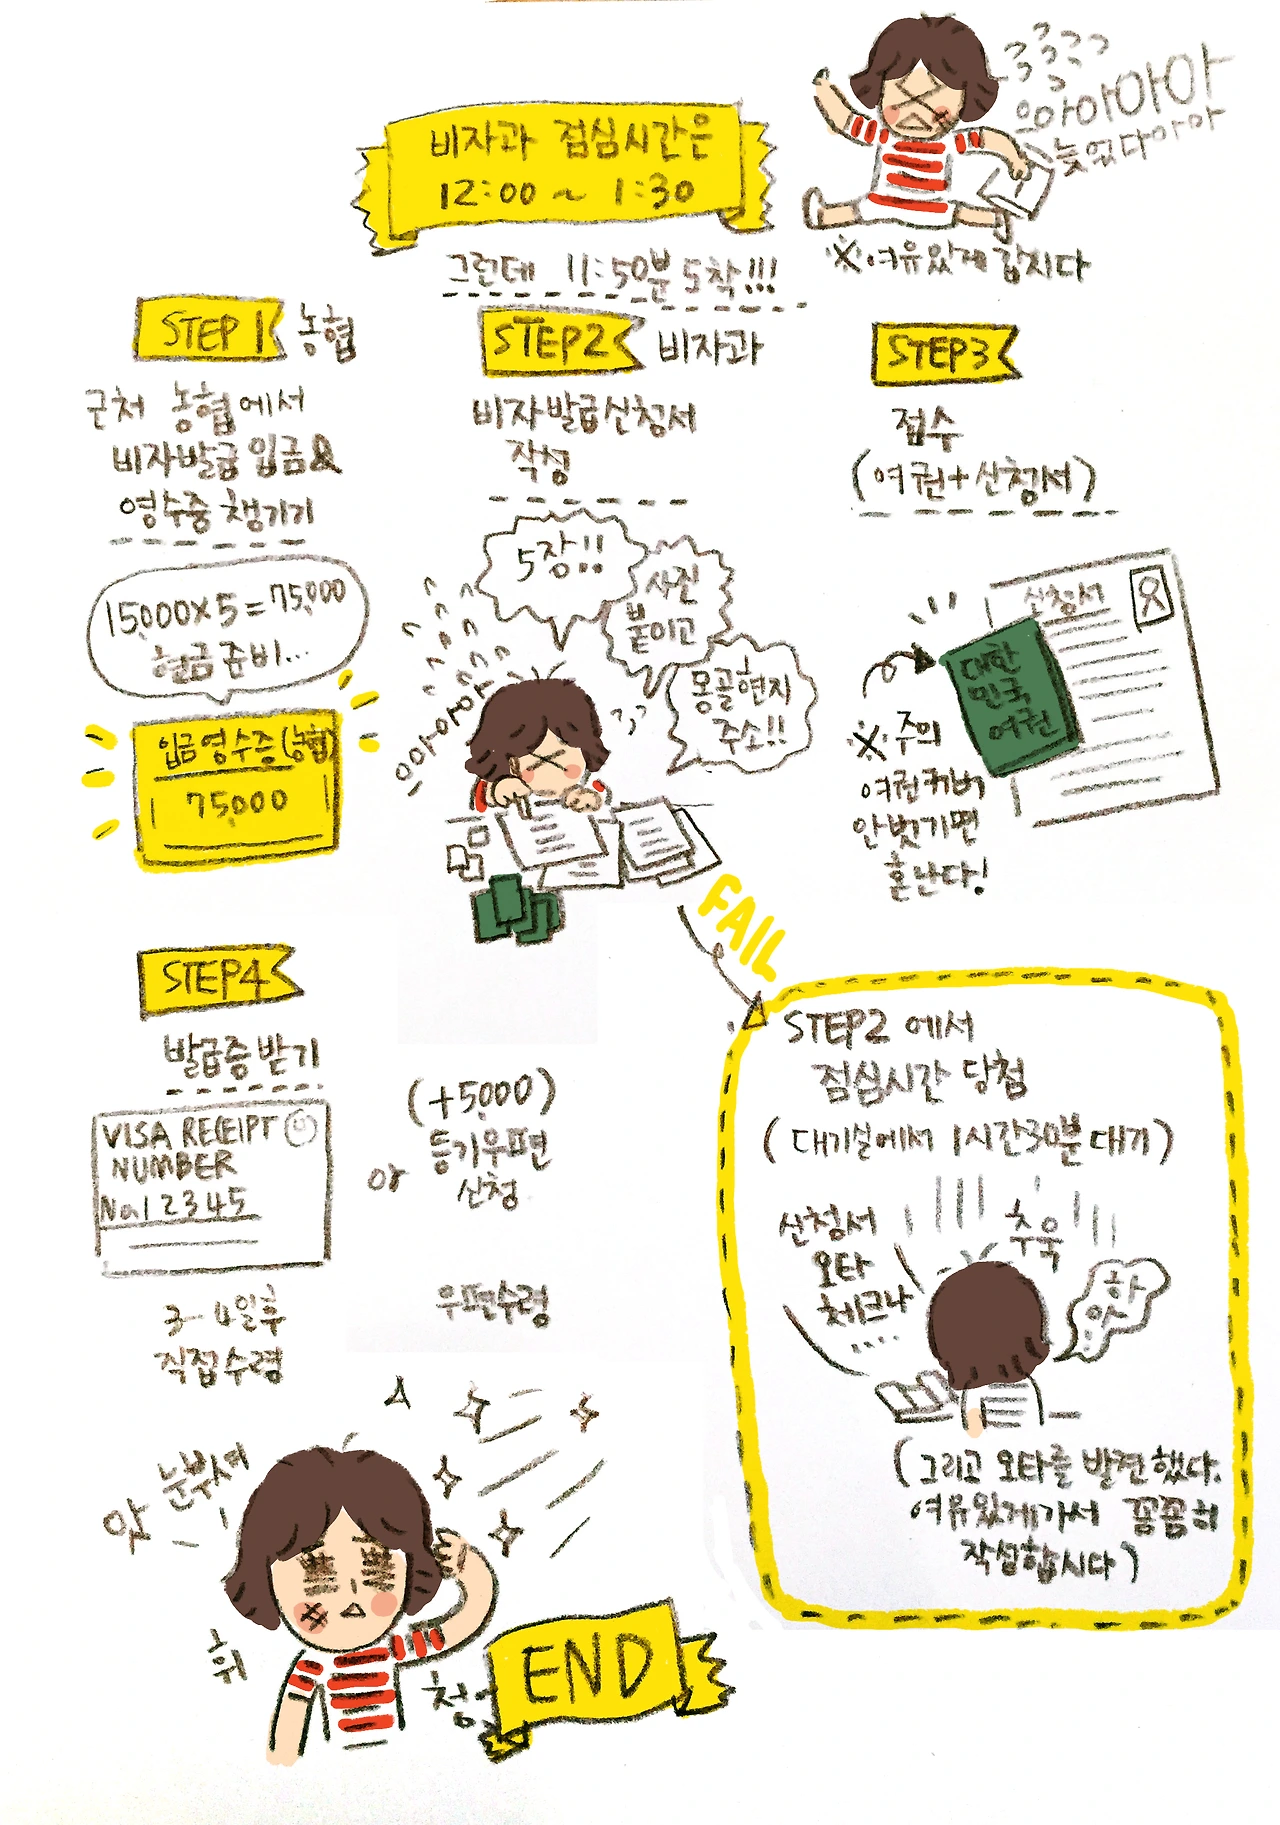 비자과 점심시간은
12:00 ~ 1:30
그런데 11:50분 도착!!!
으아아아아
늦었다아아
※여유있게 갑시다
STEP 1 농협
근처 농협에서
비자발급 입금&
영수증 챙기기
15,000×5=75,000
현금준비...
입금영수증(농협)
75,000
STEP2 비자과
비자발급신청서
작성
5장!!
사진
붙이고
몽골현지
주소!!
으아아아
STEP3
접수
(여권+신청서)
신청서
대한
민국
여권
※주의
여권커버
안벗기면
혼난다!
FAIL
STEP2 에서
점심시간 당첨
(대기실에서 1시간30분 대기)
신청서
오타
체크나
....
추욱
하
앗
(그리고 오타를 발견했다.
여유있게가서 꼼꼼히
작성합시다)
STEP4
발급증 받기
VISA RECEIPT
NUMBER
No.12345
3-4일후
직접수령
or
(+5,000)
등기우편
신청
우편수령
앗 눈부셔
휘
청
END